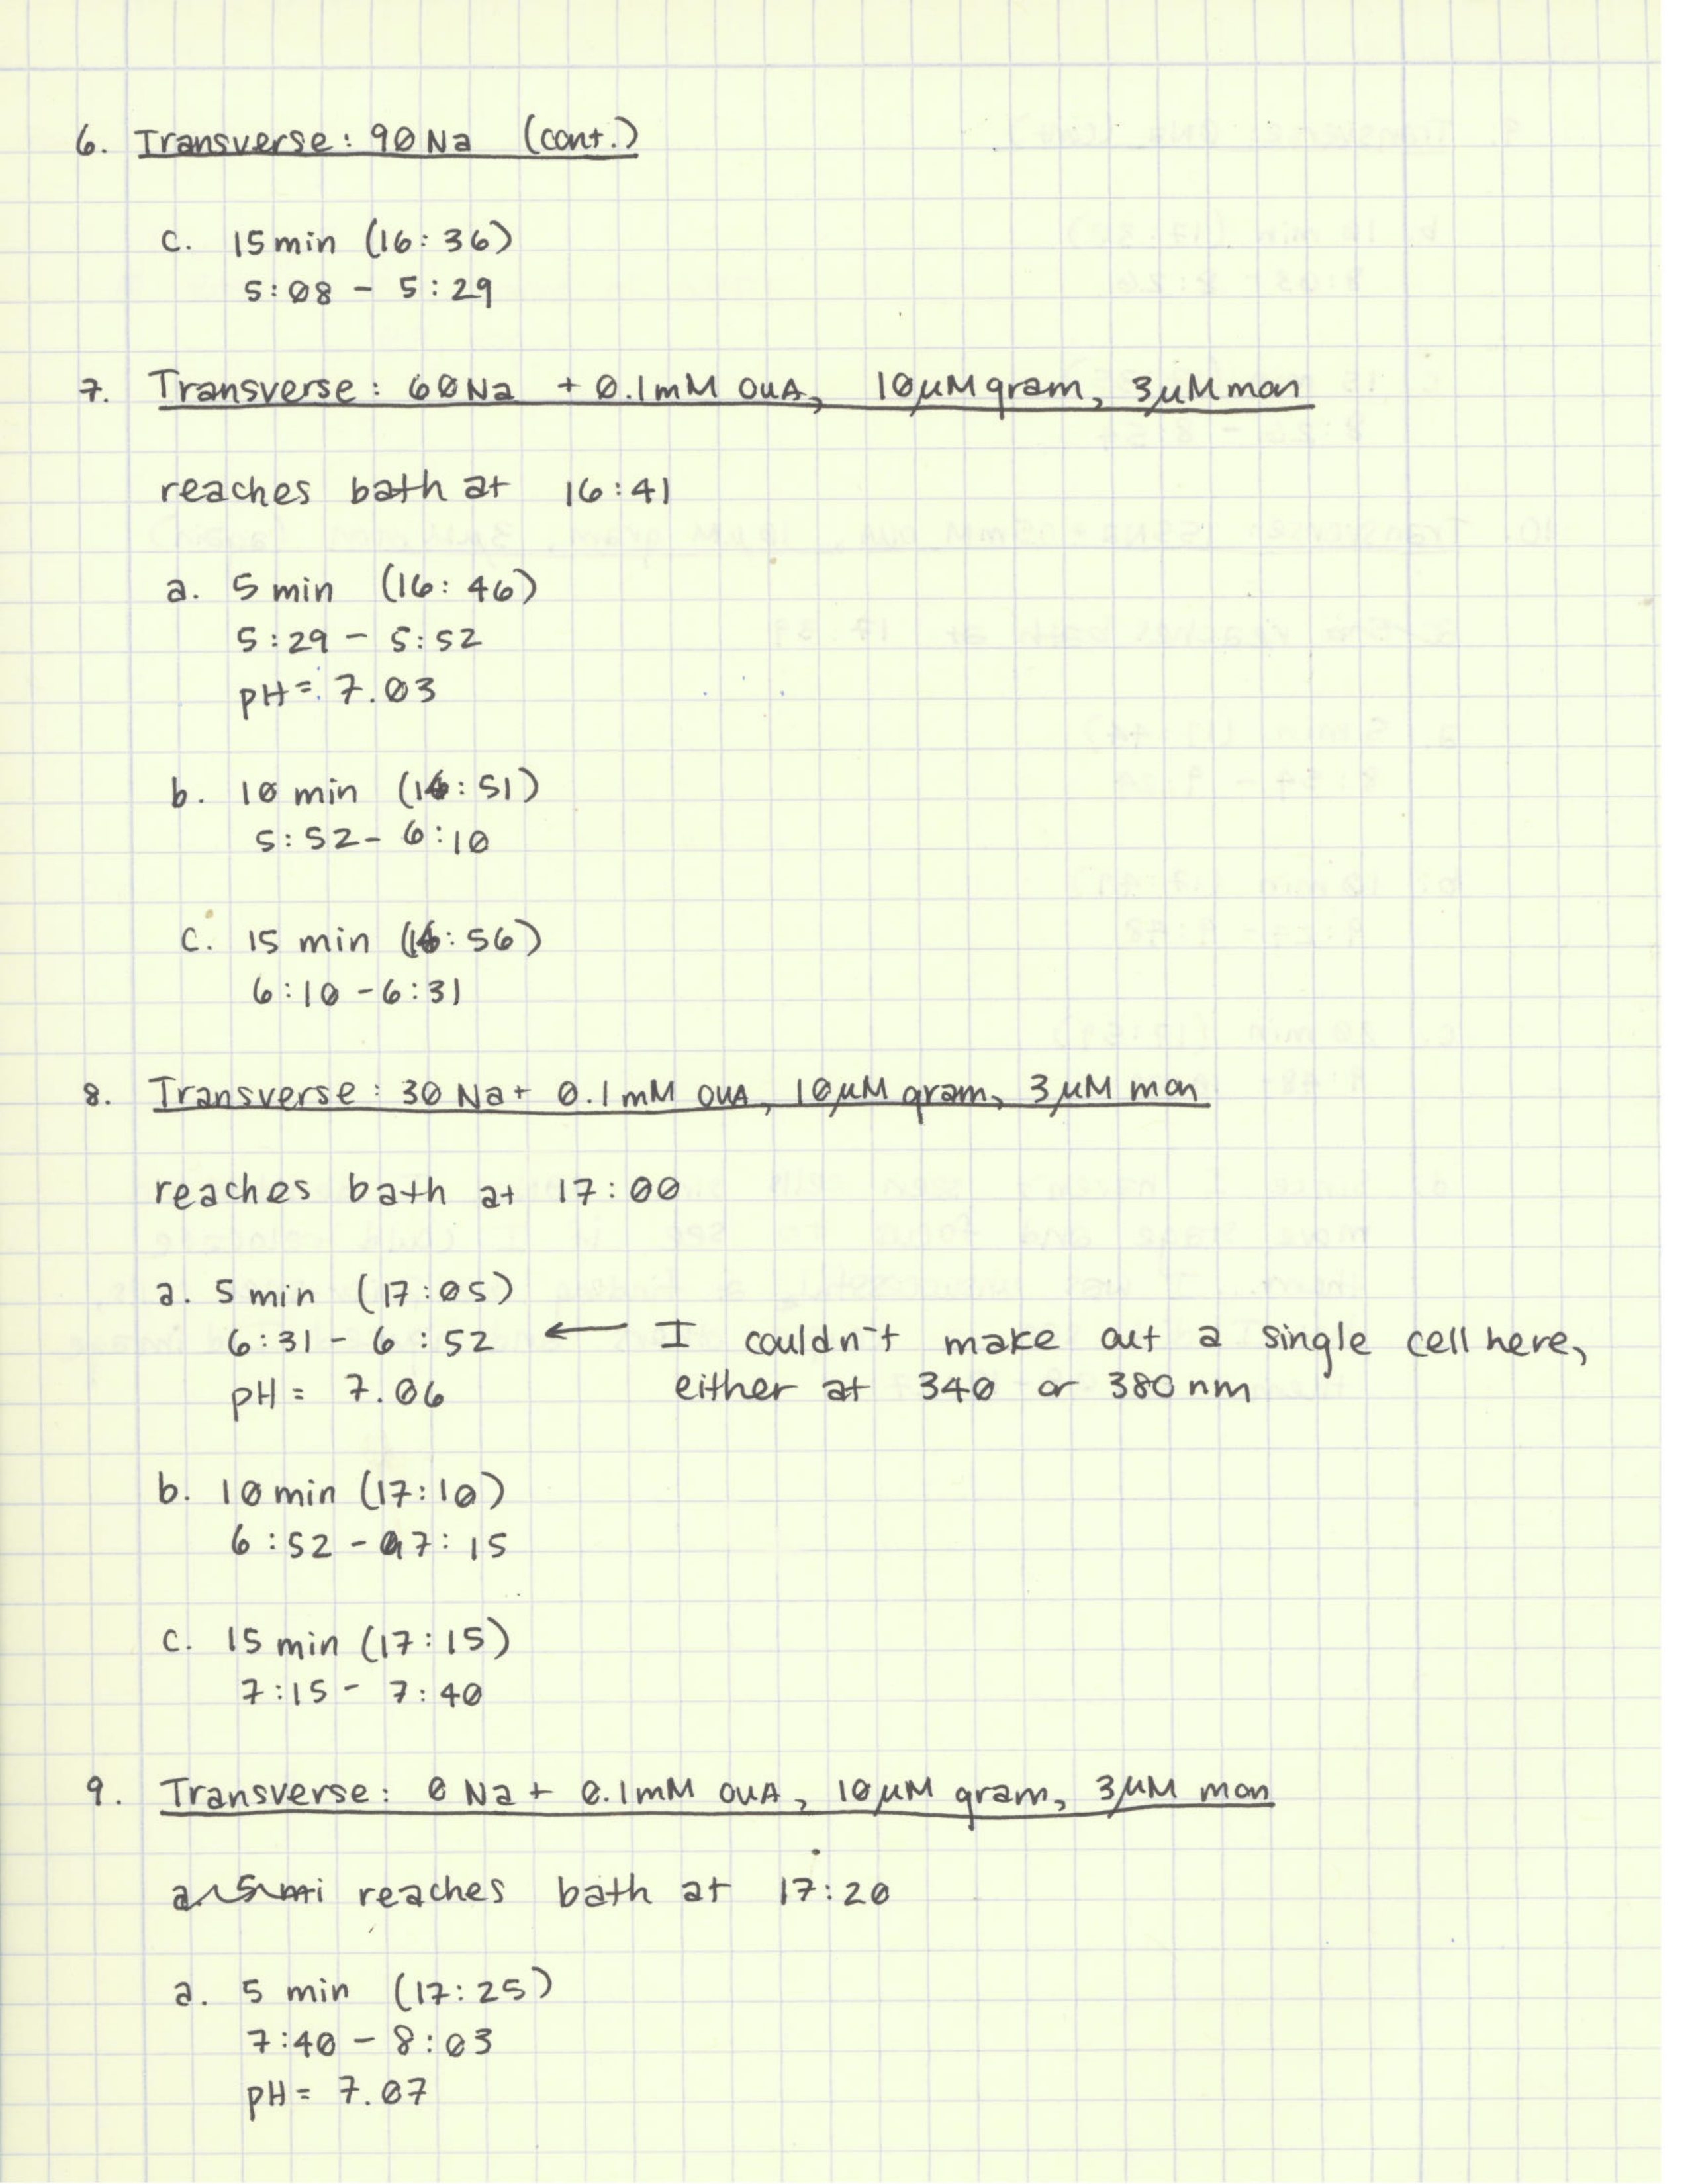 6. Transverse: 90 Na (cont.)
c. 15 min (16:36)
5:08 - 5:29
7. Transverse: 60 Na + 0.1mM OUA, 10µM gram, 3µM mon
reaches bath at 16:41
a. 5 min (16:46)
5:29 - 5:52
pH = 7.03
b. 10 min (16:51)
5:52 - 6:10
c. 15 min (16:56)
6:10 - 6:31
8. Transverse: 30 Na + 0.1mM OUA, 10µM gram, 3µM mon
reaches bath at 17:00
a. 5 min (17:05)
6:31 - 6:52 ← I couldn't make out a single cell here,
pH = 7.06 either at 340 or 380 nm
b. 10 min (17:10)
6:52 - 7:15
c. 15 min (17:15)
7:15 - 7:40
9. Transverse: 0 Na + 0.1mM OUA, 10µM gram, 3µM mon
reaches bath at 17:20
a. 5 min (17:25)
7:40 - 8:03
pH = 7.07